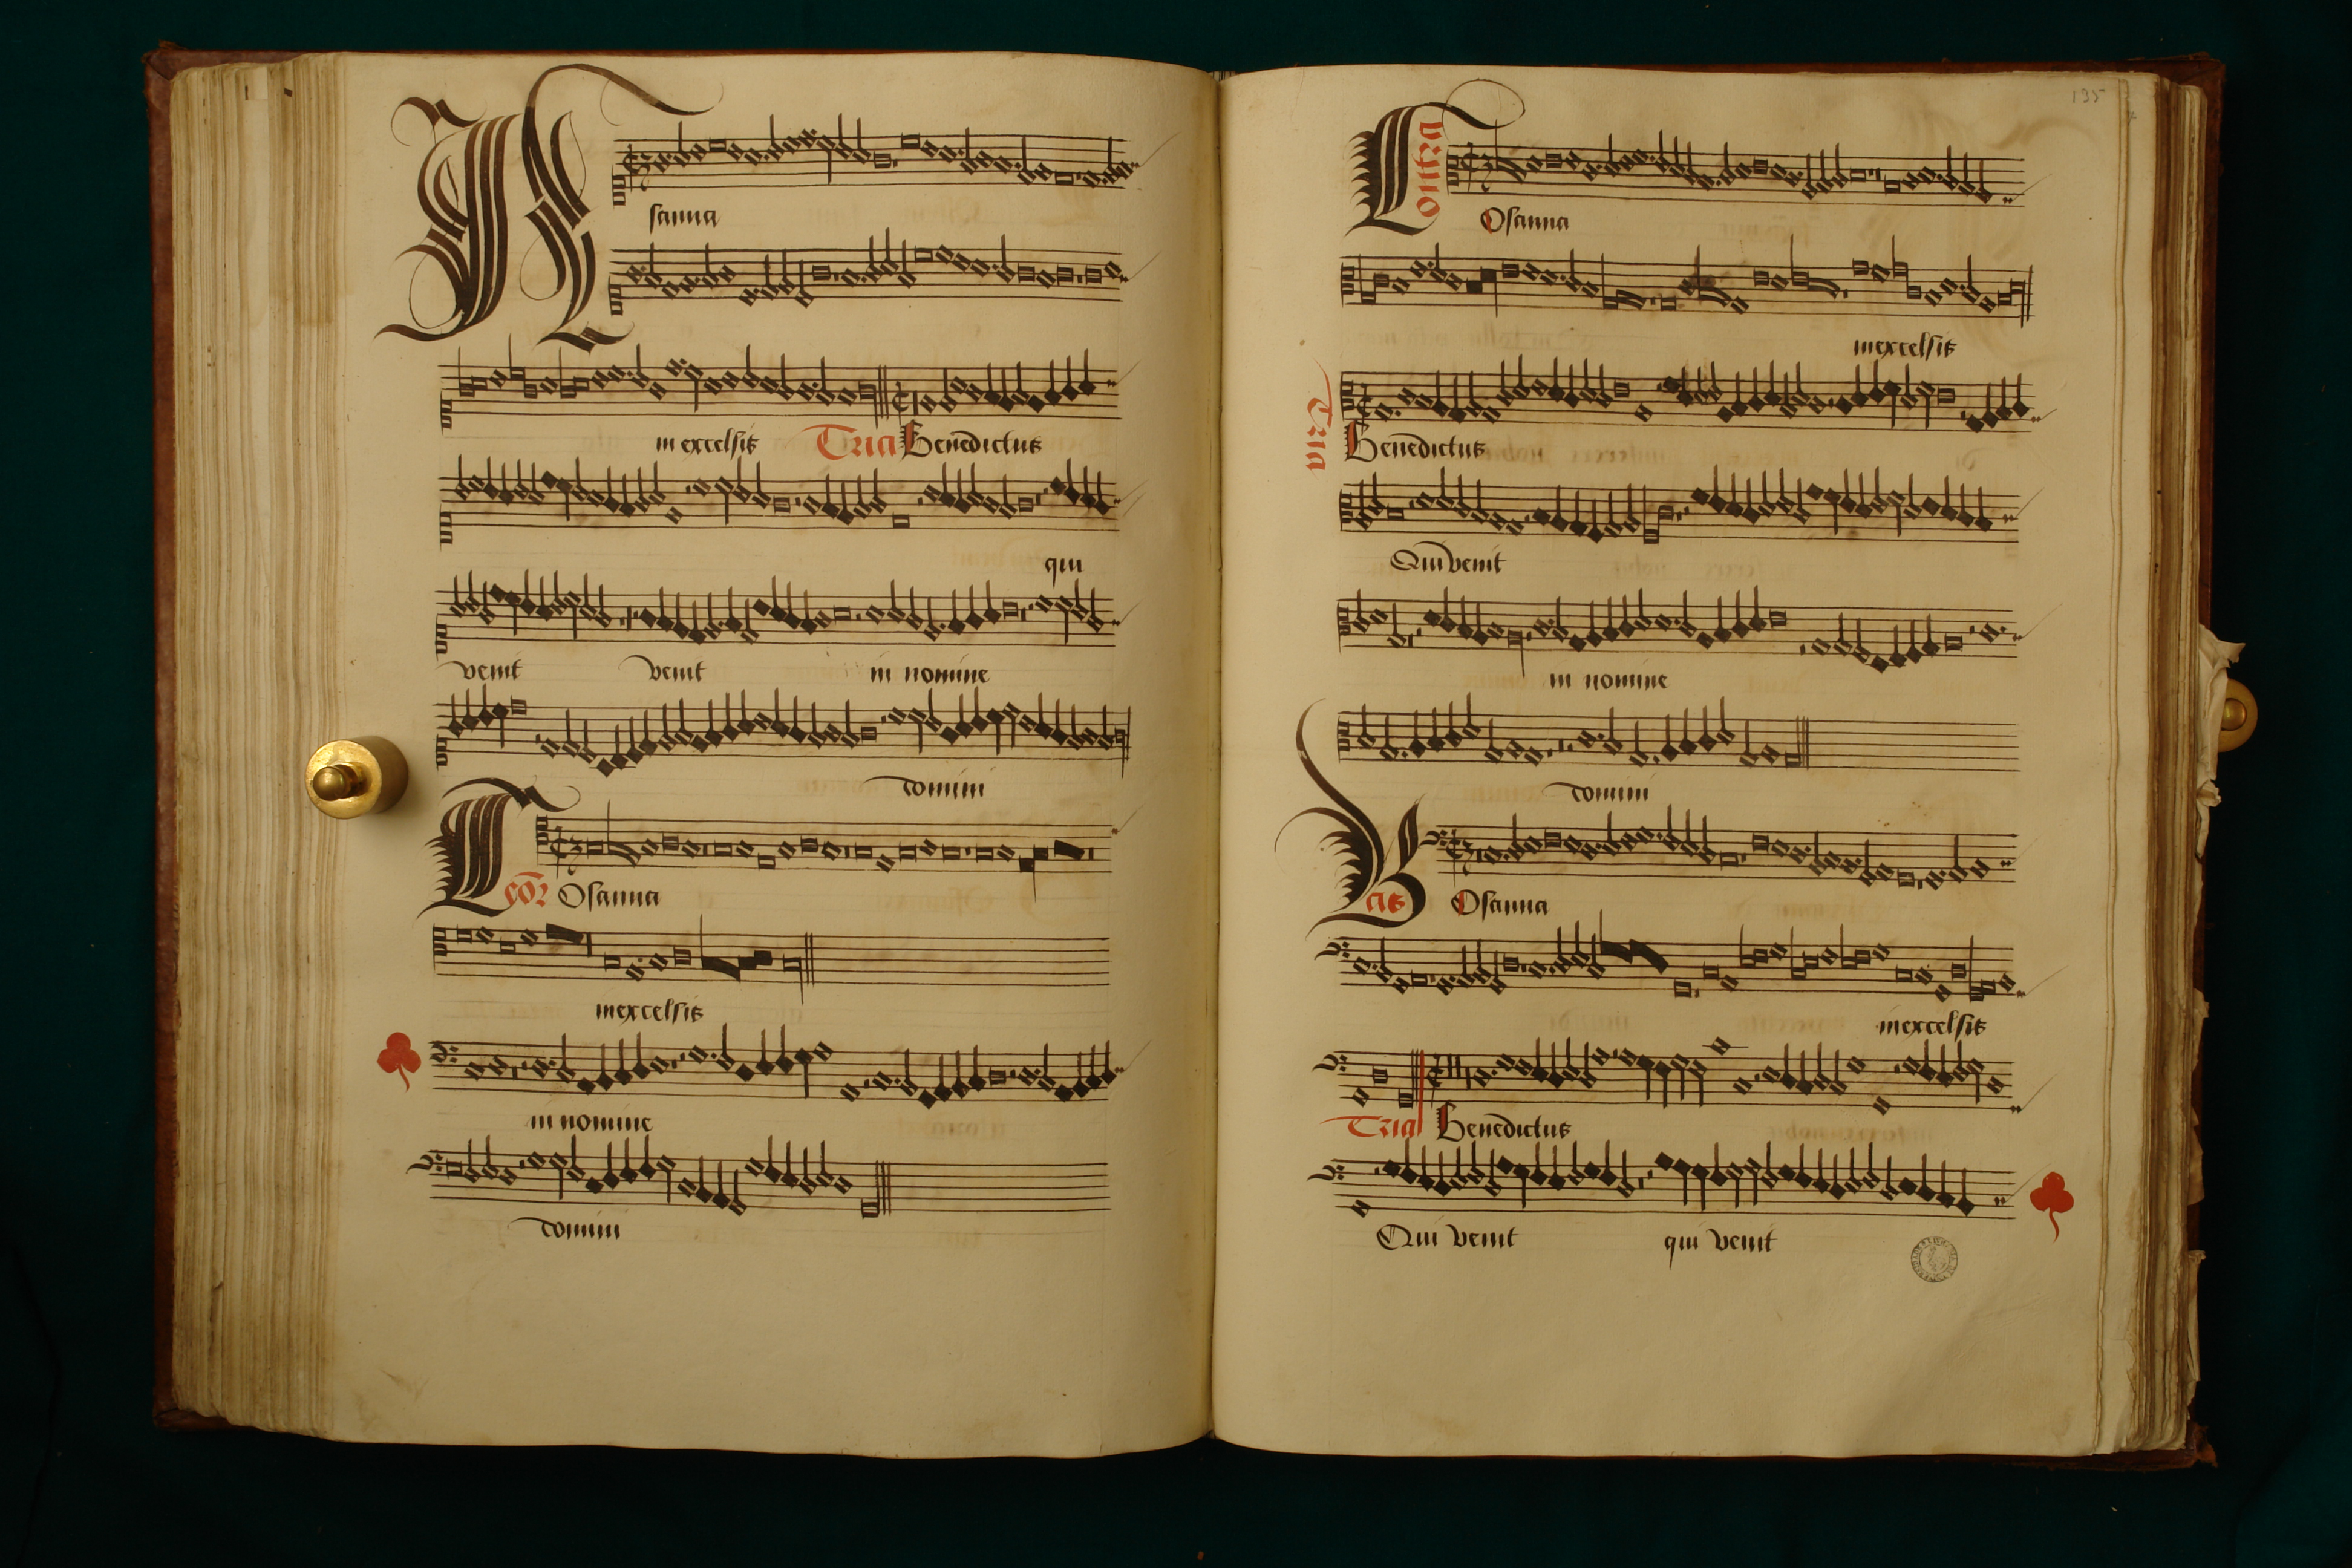 sanna
in excelsis Tria Benedictus
qui
venit venit in nomine
domini
Teor Osanna
in excelsis
in nomine
domini
195
Contra
Osanna
in excelsis
Tria
Benedictus
Qui venit
in nomine
domini
Bas Osanna
in excelsis
Tria Benedictus
Qui venit qui venit